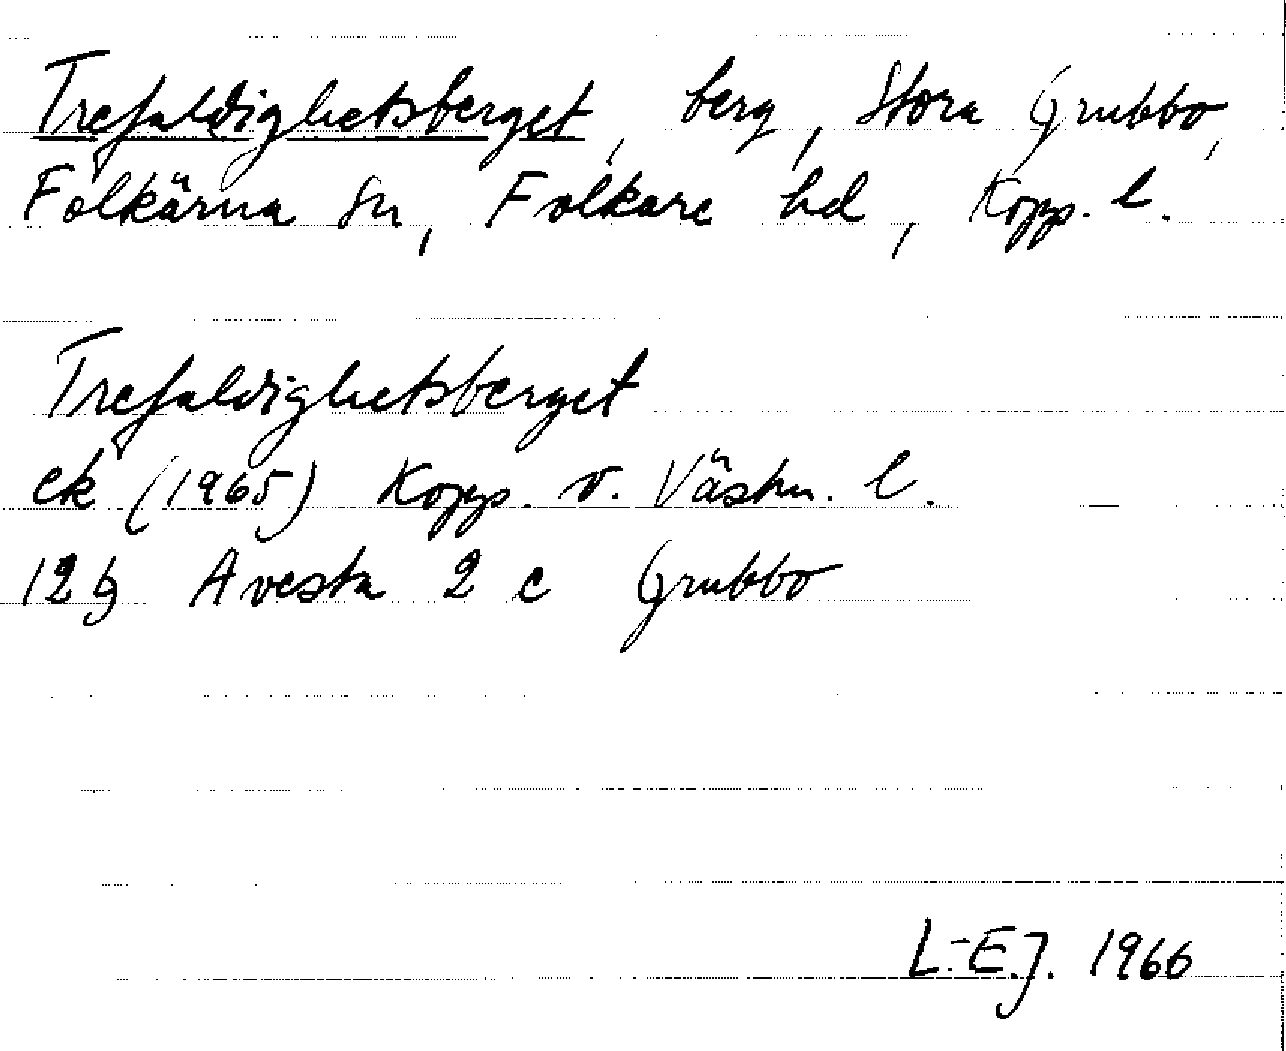 Trefaldighetsberget, berg, Stora Grubbo,
Folkärna sn, Folkare hd, Kopp. l.
Trefaldighetsberget
ek (1965) Kopp. o. Västm. l.
12 g Avesta 2 c Grubbo
L-E.J. 1966